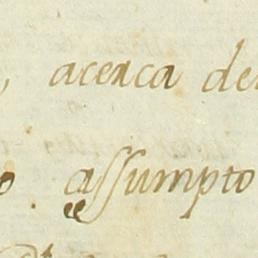 , acerca de
o. assumpto